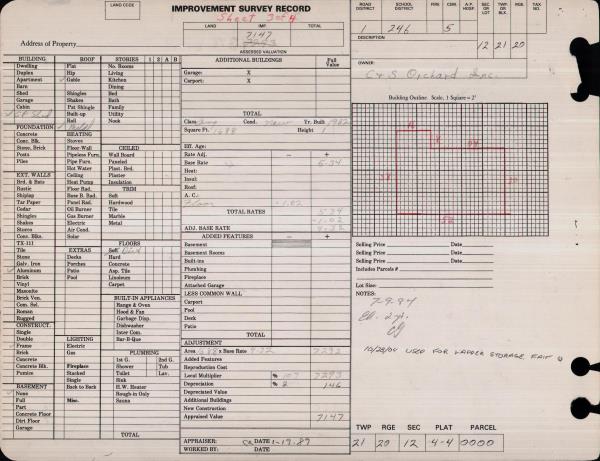 LAND CODE
IMPROVEMENT SURVEY RECORD
Sheet 3 of 4
LAND IMP. TOTAL
7147
ASSESSED VALUATION
Address of Property
ROAD DISTRICT SCHOOL DISTRICT FIRE CEM. A.P. HOSP. SEC OR LOT TWP. OR BLK. RGE. TAX NO.
1 246 5
DESCRIPTION
12 21 20
OWNER:
C & S Orchard Inc.
BUILDING ROOF STORIES 1 2 A B
Dwelling Flat No. Rooms
Duplex Hip Living
Apartment Gable Kitchen
Barn Dining
Shed Shingles Bed
Garage Shakes Bath
Cabin Pat Shingle Family
Built-up Utility
Roll Nook
FOUNDATION
Concrete HEATING
Conc. Blk. Stoves
Stone, Brick Floor-Wall CEILED
Posts Pipeless Furn. Wall Board
Piles Pipe Furn. Paneled
Hot Water Plast. Brd.
EXT. WALLS Ceiling Plaster
Brd. & Bats Heat Pump Insulation
Rustic Floor Rad. TRIM
Shiplap Base B. Rad. Soft
Tar Paper Panel Rad. Hardwood
Cedar Oil Burner Tile
Shingles Gas Burner Marble
Shakes Electric Metal
Stores Air Cond.
Conc. Blks. Solar
TX-111 FLOORS
Tile EXTRAS Soft
Stone Decks Hard
Galv. Iron Porches Concrete
Aluminum Patio Asp. Tile
Brick Pool Linoleum
Vinyl Carpet
Masonite
Brick Ven. BUILT-IN APPLIANCES
Com. Sel. Range & Oven
Roman Hood & Fan
Rugged Garbage Disp.
CONSTRUCT. Dishwasher
Single Inter Com.
Double LIGHTING Bar-B-Que
Frame Electric
Brick Gas PLUMBING
Concrete 1st G. 2nd G.
Concrete Blk. Fireplace Shower Tub
Pumice Stacked Toilet Lav.
Single Sink
BASEMENT Back to Back H.W. Heater
None Rough-in Only
Full Misc. Sauna
Part
Concrete Floor
Dirt Floor
Garage
TOTAL
ADDITIONAL BUILDINGS Full Value
Garage: X
Carport: X
TOTAL
Class Cond. Yr. Built 1982
Square Ft. 1688 Height 1
Eff. Age:
Rate Adj. − +
Base Rate 5.34
Heat:
Insul:
Roof:
A. C.:
Floor -1.02
TOTAL RATES 5.34
-1.02
ADJ. BASE RATE 4.32
ADDED FEATURES − +
Basement
Basement Rooms
Built-ins
Plumbing
Fireplace
Attached Garage
LESS COMMON WALL
Carport
Pool
Deck
Patio
TOTAL
ADJUSTMENT
Area 1688 x Base Rate 4.32 7292
Added Features
Reproduction Cost
Local Multiplier % 100 7293
Depreciation % 2 146
Depreciated Value
Additional Buildings
New Construction
Appraised Value 7147
APPRAISER: DATE 1-19-89
WORKED BY: DATE
Building Outline. Scale, 1 Square = 2'
Selling Price Date
Selling Price Date
Selling Price Date
Includes Parcels #
Lot Size:
NOTES:
7-9-84
10/28/04 USED FOR LADDER STORAGE
TWP RGE SEC PLAT PARCEL
21 20 12 4-4 0000